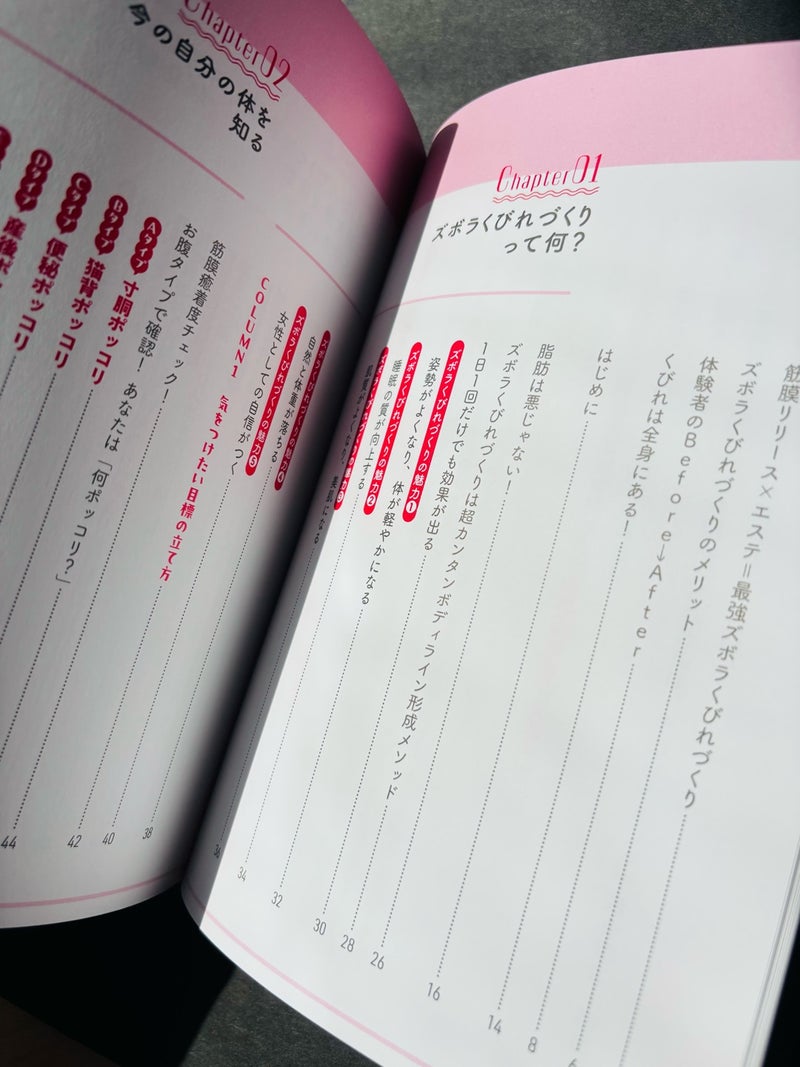 筋膜リリース×エステ=最強ズボラくびれづくり
ズボラくびれづくりのメリット
体験者のBefore→After
くびれは全身にある!
はじめに
Chapter01
ズボラくびれづくり
って何?
脂肪は悪じゃない!
8
ズボラくびれづくりは超カンタンボディライン形成メソッド
14
1日1回だけでも効果が出る
16
ズボラくびれづくりの魅力❶
姿勢がよくなり、体が軽やかになる
26
ズボラくびれづくりの魅力❷
睡眠の質が向上する
28
ズボラくびれづくりの魅力❸
肌質がよくなり、美肌になる
30
ズボラくびれづくりの魅力❹
自然と体重が落ちる
32
ズボラくびれづくりの魅力❺
女性としての自信がつく
34
COLUMN1 気をつけたい目標の立て方
36
Chapter02
今の自分の体を
知る
筋膜癒着度チェック!
38
お腹タイプで確認! あなたは「何ポッコリ?」
40
Aタイプ 寸胴ポッコリ
42
Bタイプ 猫背ポッコリ
44
Cタイプ 便秘ポッコリ
Dタイプ 産後ポッコリ